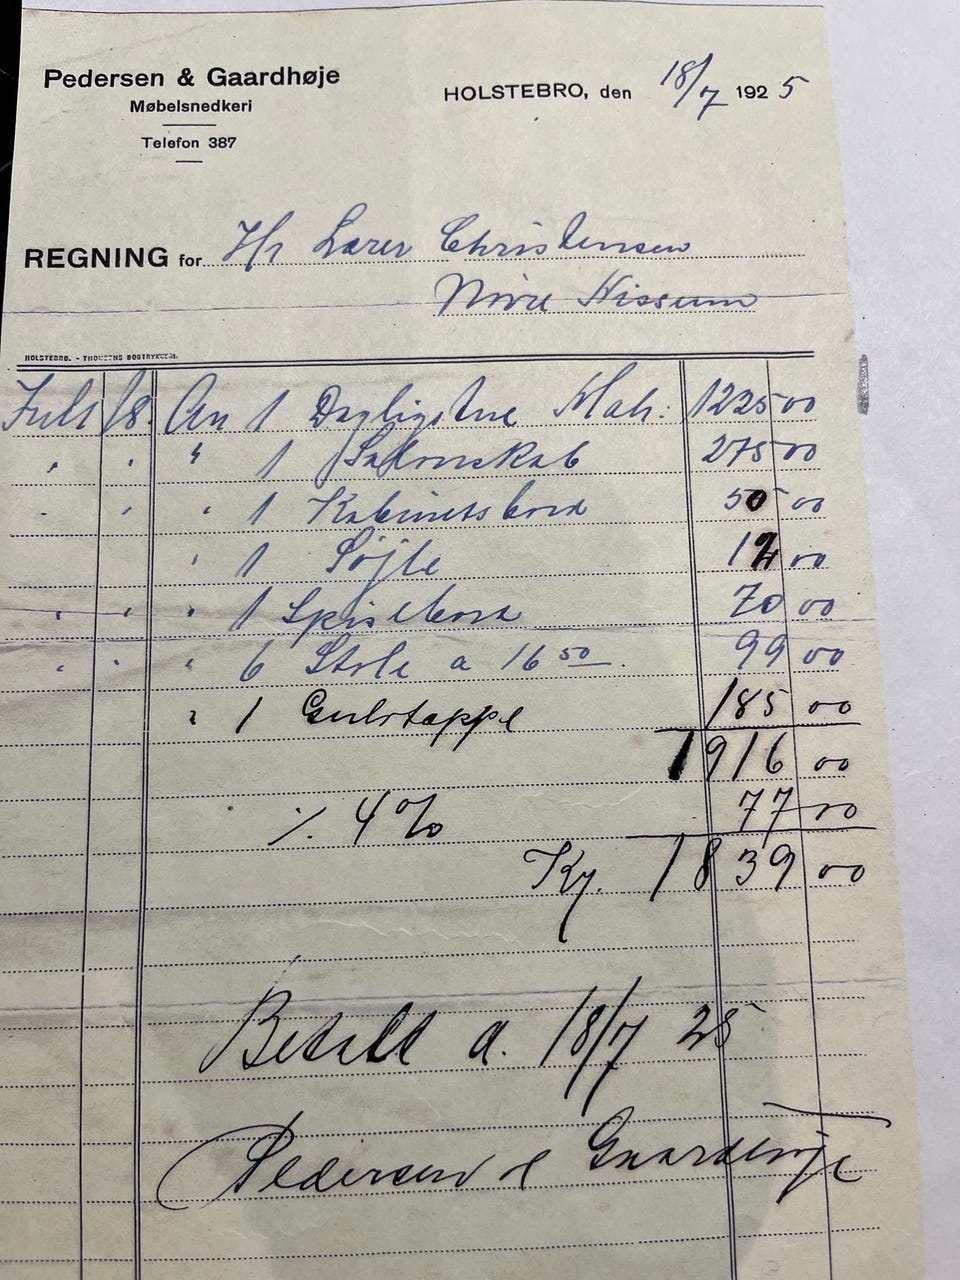 Pedersen & Gaardhøje
Møbelsnedkeri
Telefon 387
HOLSTEBRO, den 18/7 1925
REGNING for Hr Lærer Christensen
Nørre Nissum
HOLSTEBRO. - THOMSENS BOGTRYKKERI.
Juli 18. An 1 Dagligstue Mah: 1225 00
" " " 1 Salonskab 275 00
" " " 1 Kabinetsbord 50 00
" 1 Søjle 12 00
" " " 1 Spisebord 70 00
" " " 6 Stole a 16 50 99 00
" 1 Gulvtæppe 185 00
1916 00
÷ 4% 77 00
Kr. 1839 00
Betalt d. 18/7 25
Pedersen & Gaardhøje